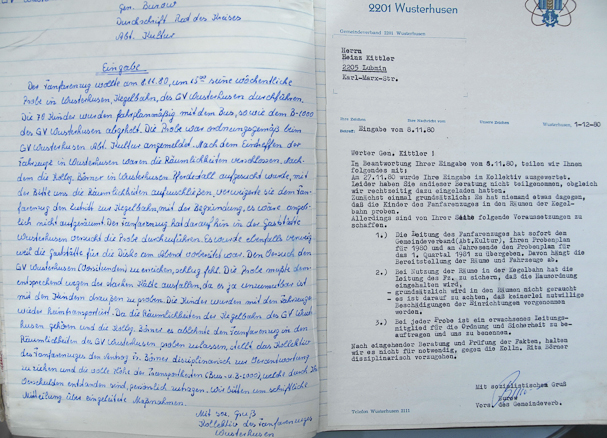 Gen. Burow
Durchschrift Rat des Kreises
Abt. Kultur
Eingabe
Der Fanfarenzug wollte am 8.11.80, um 15°° seine wöchentliche
Probe in Wusterhusen, Kegelbahn, des GV Wusterhusen durchführen.
Die 78 Kinder wurden fahrplanmäßig mit dem Bus, sowie dem B-1000
des GV Wusterhusen abgeholt. Die Probe war ordnungsgemäß beim
GV Wusterhusen Abt. Kultur angemeldet. Nach dem Eintreffen der
Fahrzeuge in Wusterhusen waren die Räumlichkeiten verschlossen. Nach-
dem die Kollg. Börner in Wusterhusen, Pferdestall aufgesucht wurde, mit
der Bitte uns die Räumlichkeiten aufzuschließen, verweigerte sie dem Fan-
farenzug den Eintritt zur Kegelbahn, mit der Begründung, es wäre angeb-
lich nicht aufgeräumt. Der Fanfarenzug hat daraufhin in der Gaststätte
Wusterhusen versucht die Probe durchzuführen. Es wurde ebenfalls verweigert
weil die Gaststätte für die Disko am Abend vorbereitet war. Den Versuch den
GV Wusterhusen (Vorsitzenden) zu erreichen, schlug fehl. Die Probe mußte dem-
entsprechend wegen der starken Kälte ausfallen, da es ja unzumutbar ist
mit den Kindern draußen zu proben. Die Kinder wurden mit den Fahrzeugen
wieder heimtransportiert. Da die Räumlichkeiten der Kegelbahn des GV Wuster-
husen gehören und die Kollg. Börner, es ablehnte den Fanfarenzug in den
Räumlichkeiten des GV Wusterhusen proben zu lassen, stellt das Kollektiv
des Fanfarenzuges den Antrag R. Börner disziplinarisch zur Verantwortung
zu ziehen und die volle Höhe der Transportkosten (Bus u. B-1000), welche durch ihr
Verschulden entstanden sind, persönlich zu tragen. Wir bitten um schriftliche
Mitteilung über eingeleitete Maßnahmen.
Mit soz. Gruß
Kollektiv des Fanfarenzuges
Wusterhusen
2201 Wusterhusen
Gemeindeverband 2201 Wusterhusen
Herrn
Heinz Kittler
2205 Lubmin
Karl-Marx-Str.
Wusterhusen, 1-12-80
Betreff: Eingabe vom 8.11.80
Werter Gen. Kittler !
In Beantwortung Ihrer Eingabe vom 8.11.80, teilen wir Ihnen
folgendes mit:
Am 27.11.80 wurde Ihre Eingabe in Kollektiv ausgewertet.
Leider haben Sie an dieser Beratung nicht teilgenommen, obgleich
wir rechtzeitig dazu eingeladen hatten.
Zunächst einmal grundsätzlich: Es hat niemand etwas dagegen,
daß die Kinder des Fanfarenzuges in den Räumen der Kegel-
bahn proben.
Allerdings sind von Ihrer Seite folgende Voraussetzungen zu
schaffen.
1.) Die Leitung des Fanfarenzuges hat sofort den
Gemeindeverband (Abt.Kultur), ihren Probenplan
für 1980 und am Jahresende den Probenplan für
das 1. Quartal 1981 zu übergeben. Davon hängt die
Bereitstellung der Räume und Fahrzeuge ab.
2.) Bei Nutzung der Räume in der Kegelbahn hat die
Leitung des Fz. zu sichern, daß die Hausordnung
eingehalten wird,
- grundsätzlich wird in den Räumen nicht geraucht
- es ist darauf zu achten, daß keinerlei mutwillige
Beschädigungen der Einrichtungen vorgenommen
werden.
3.) Bei jeder Probe ist ein erwachsenes Leitungs-
mitglied für die Ordnung und Sicherheit zu be-
auftragen und uns zu benennen.
Nach eingehender Beratung und Prüfung der Fakten, halten
wir es nicht für notwendig, gegen die Kolln. Rita Börner
disziplinarisch vorzugehen.
Mit sozialistischem Gruß
Burow
Vors. des Gemeindeverb.
Telefon Wusterhusen